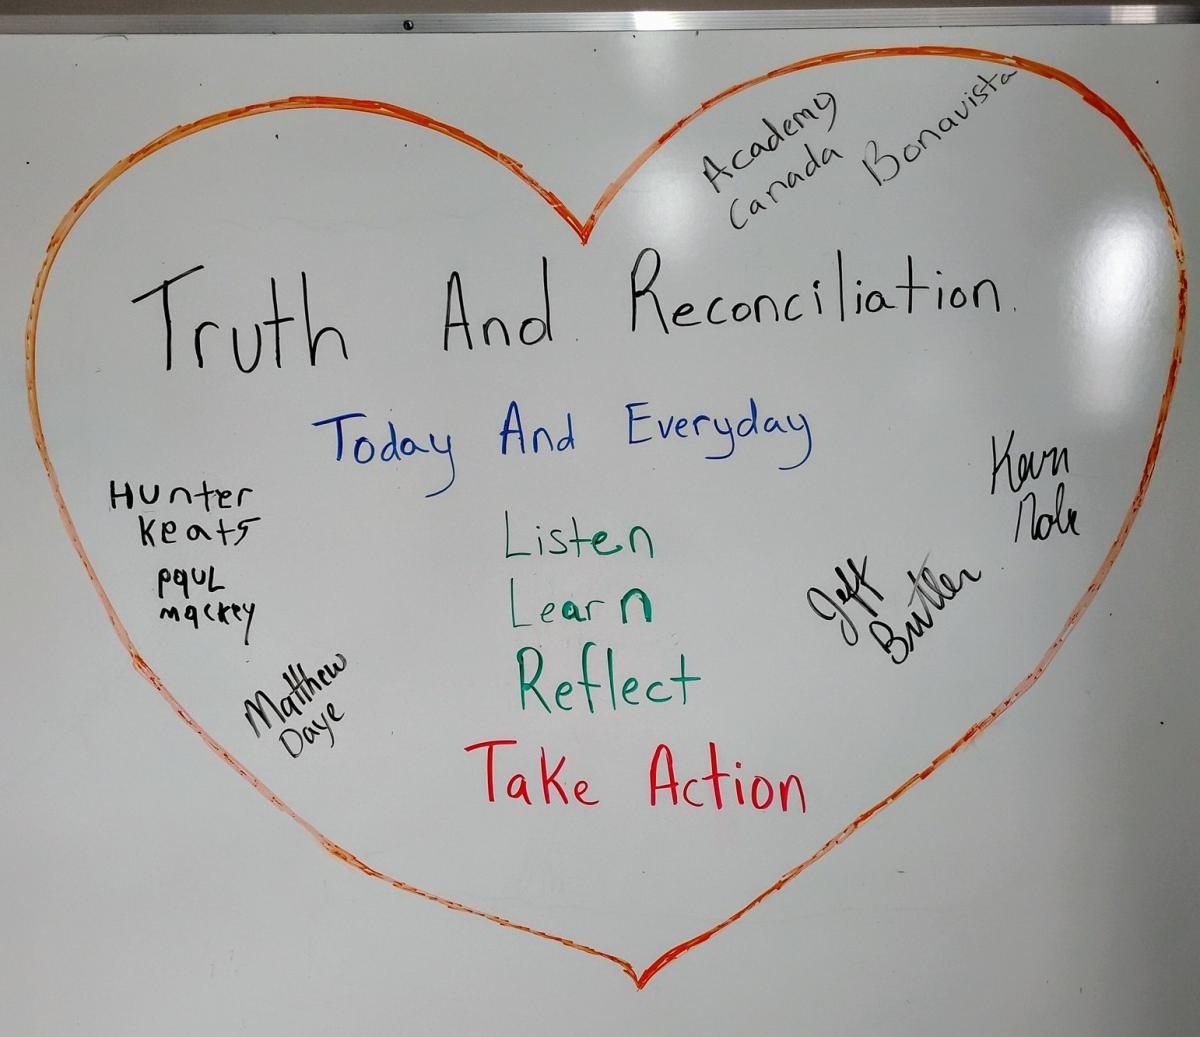 Academy
Canada
Bonavista
Truth And Reconciliation.
Today And Everyday
Listen
Learn
Reflect
Take Action
Hunter
Keats
Paul
mackey
Matthew
Daye
Jeff
Butler